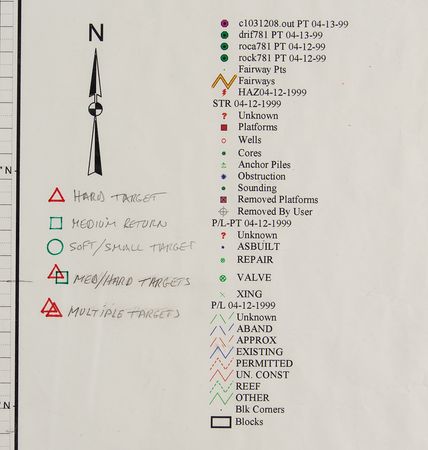 N
HARD TARGET
MEDIUM RETURN
SOFT/SMALL TARGET
MED/HARD TARGETS
MULTIPLE TARGETS
°N
°N
c1031208.out PT 04-13-99
drif781 PT 04-13-99
roca781 PT 04-12-99
rock781 PT 04-12-99
Fairway Pts
Fairways
HAZ04-12-1999
STR 04-12-1999
? Unknown
Platforms
Wells
Cores
Anchor Piles
Obstruction
Sounding
Removed Platforms
Removed By User
P/L-PT 04-12-1999
? Unknown
ASBUILT
REPAIR
VALVE
XING
P/L 04-12-1999
Unknown
ABAND
APPROX
EXISTING
PERMITTED
UN. CONST
REEF
OTHER
Blk Corners
Blocks